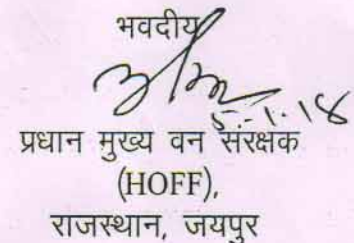 भवदीय
5.1.18
प्रधान मुख्य वन संरक्षक
(HOFF),
राजस्थान, जयपुर